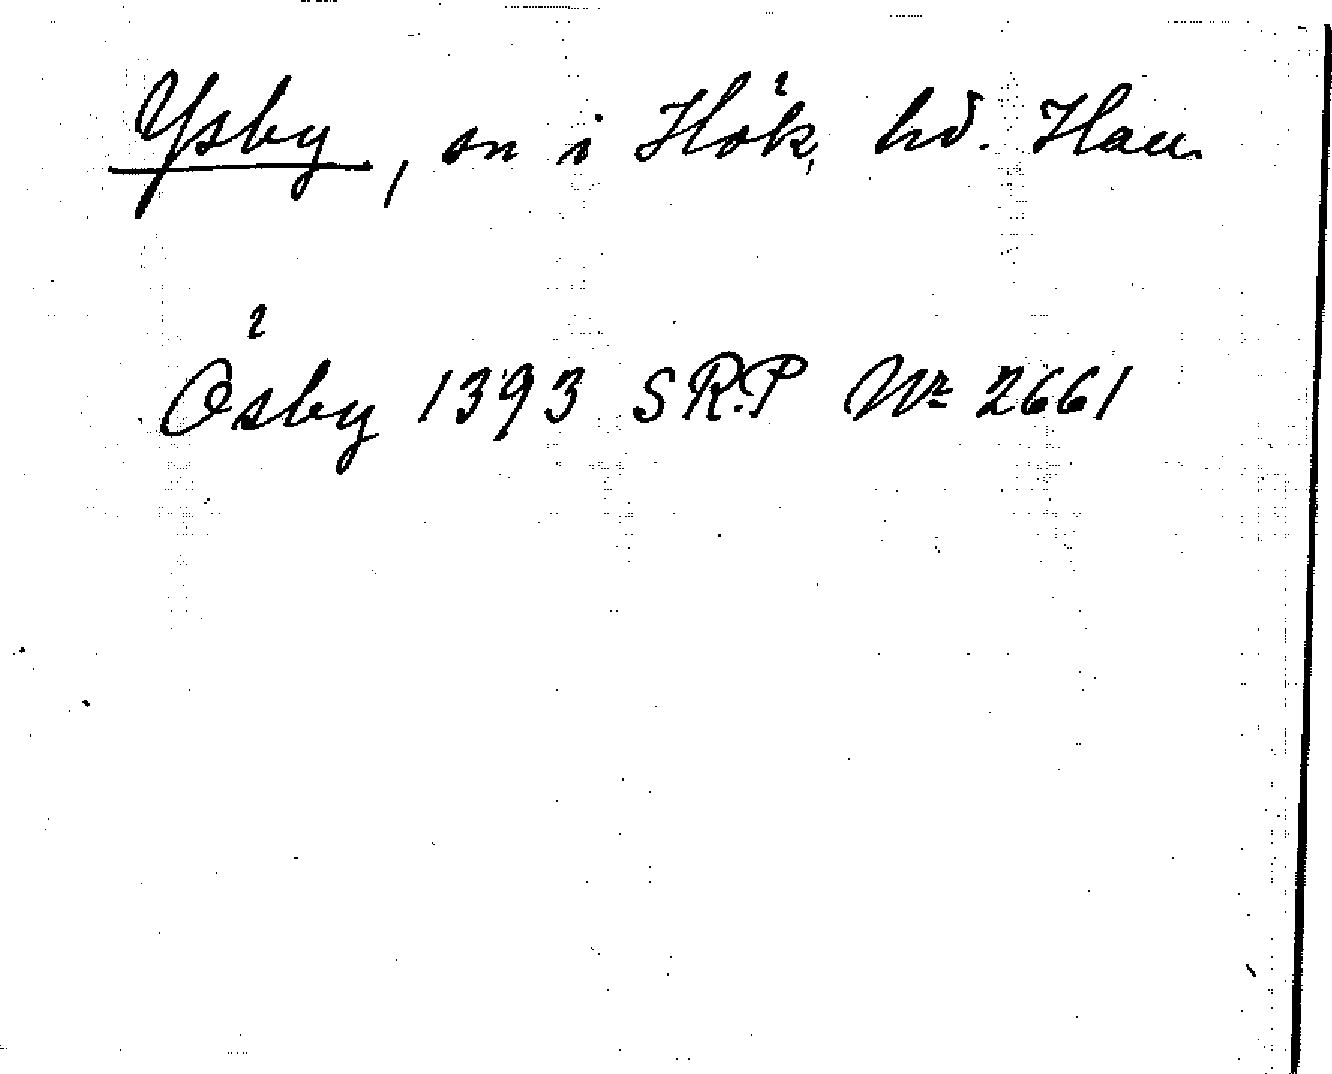 Ysby, sn i Hök, hd. Hall.
Ösby 1393 SRP Nr 2661